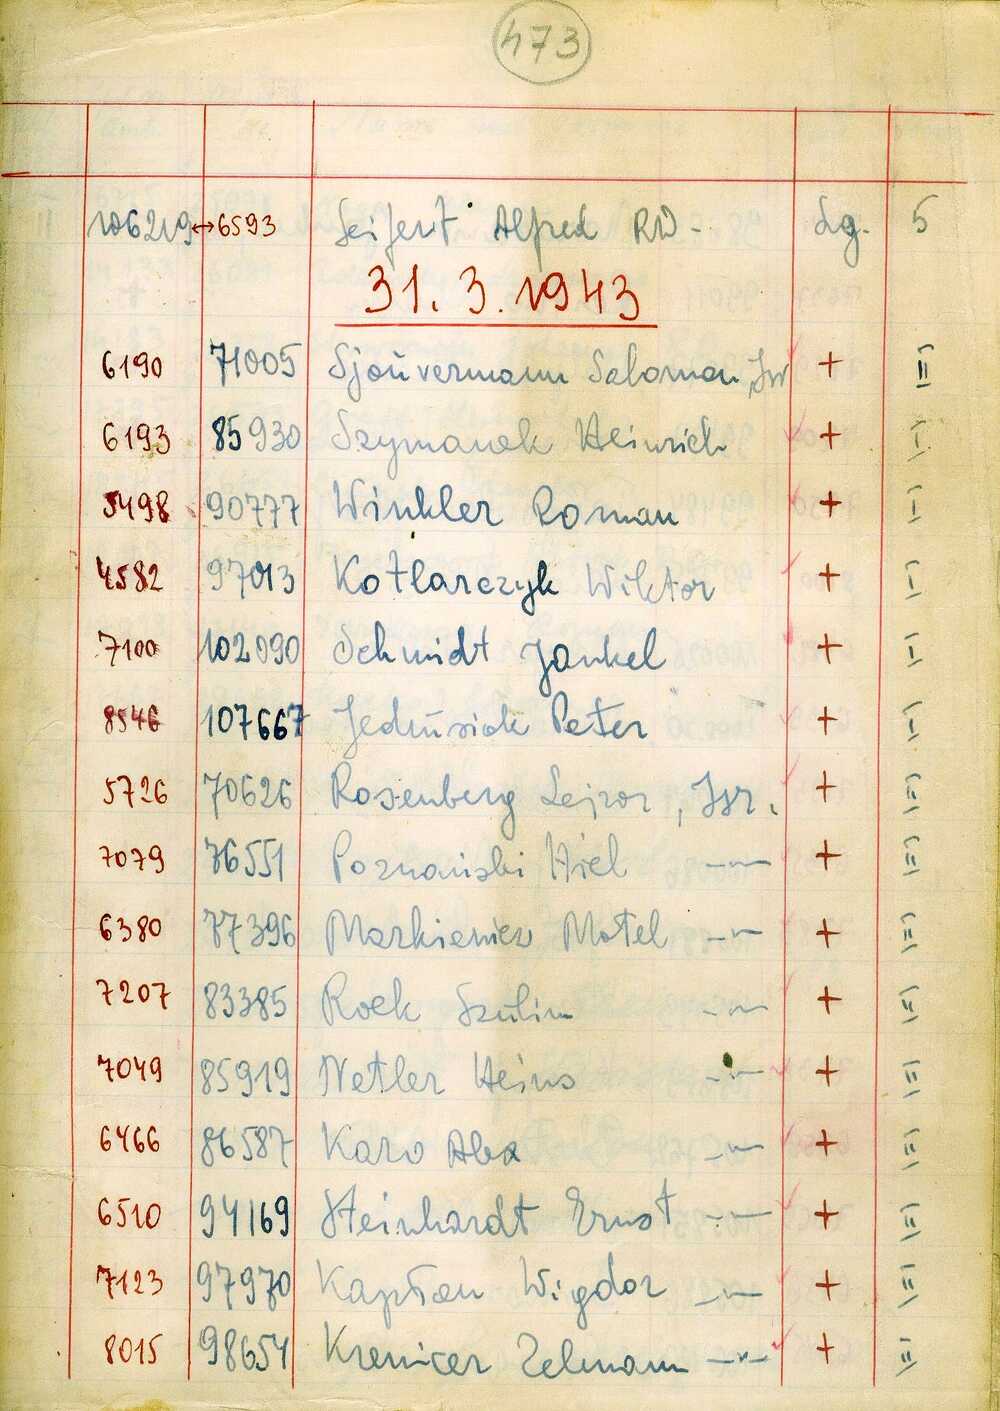 473
106219 ↔ 6593 Seifert Alfred RD- Lg. 5
31.3.1943
6190 71005 Sjouvermann Salomon Isr +
6193 85930 Szymanek Heinrich + -"-
5498 90777 Winkler Roman + -"-
4582 97013 Kotlarczyk Wiktor + -"-
7100 102090 Schmidt Jankel + -"-
8546 107667 Peter + -"-
5726 70626 Rosenberg Lejzor, Isr. + -"-
7079 76551 Poznański Hiel -"- + -"-
6380 77396 Markiewicz Motel -"- + -"-
7207 83385 Rock Szulim -"- + -"-
7049 85919 Netler Heins -"- + -"-
6466 86587 Karo Aba -"- + -"-
6510 94169 Steinhardt Ernst -"- + -"-
7123 97970 Kapłan Wigdor -"- + -"-
8015 98654 Kremicer Zelmann -"- + -"-